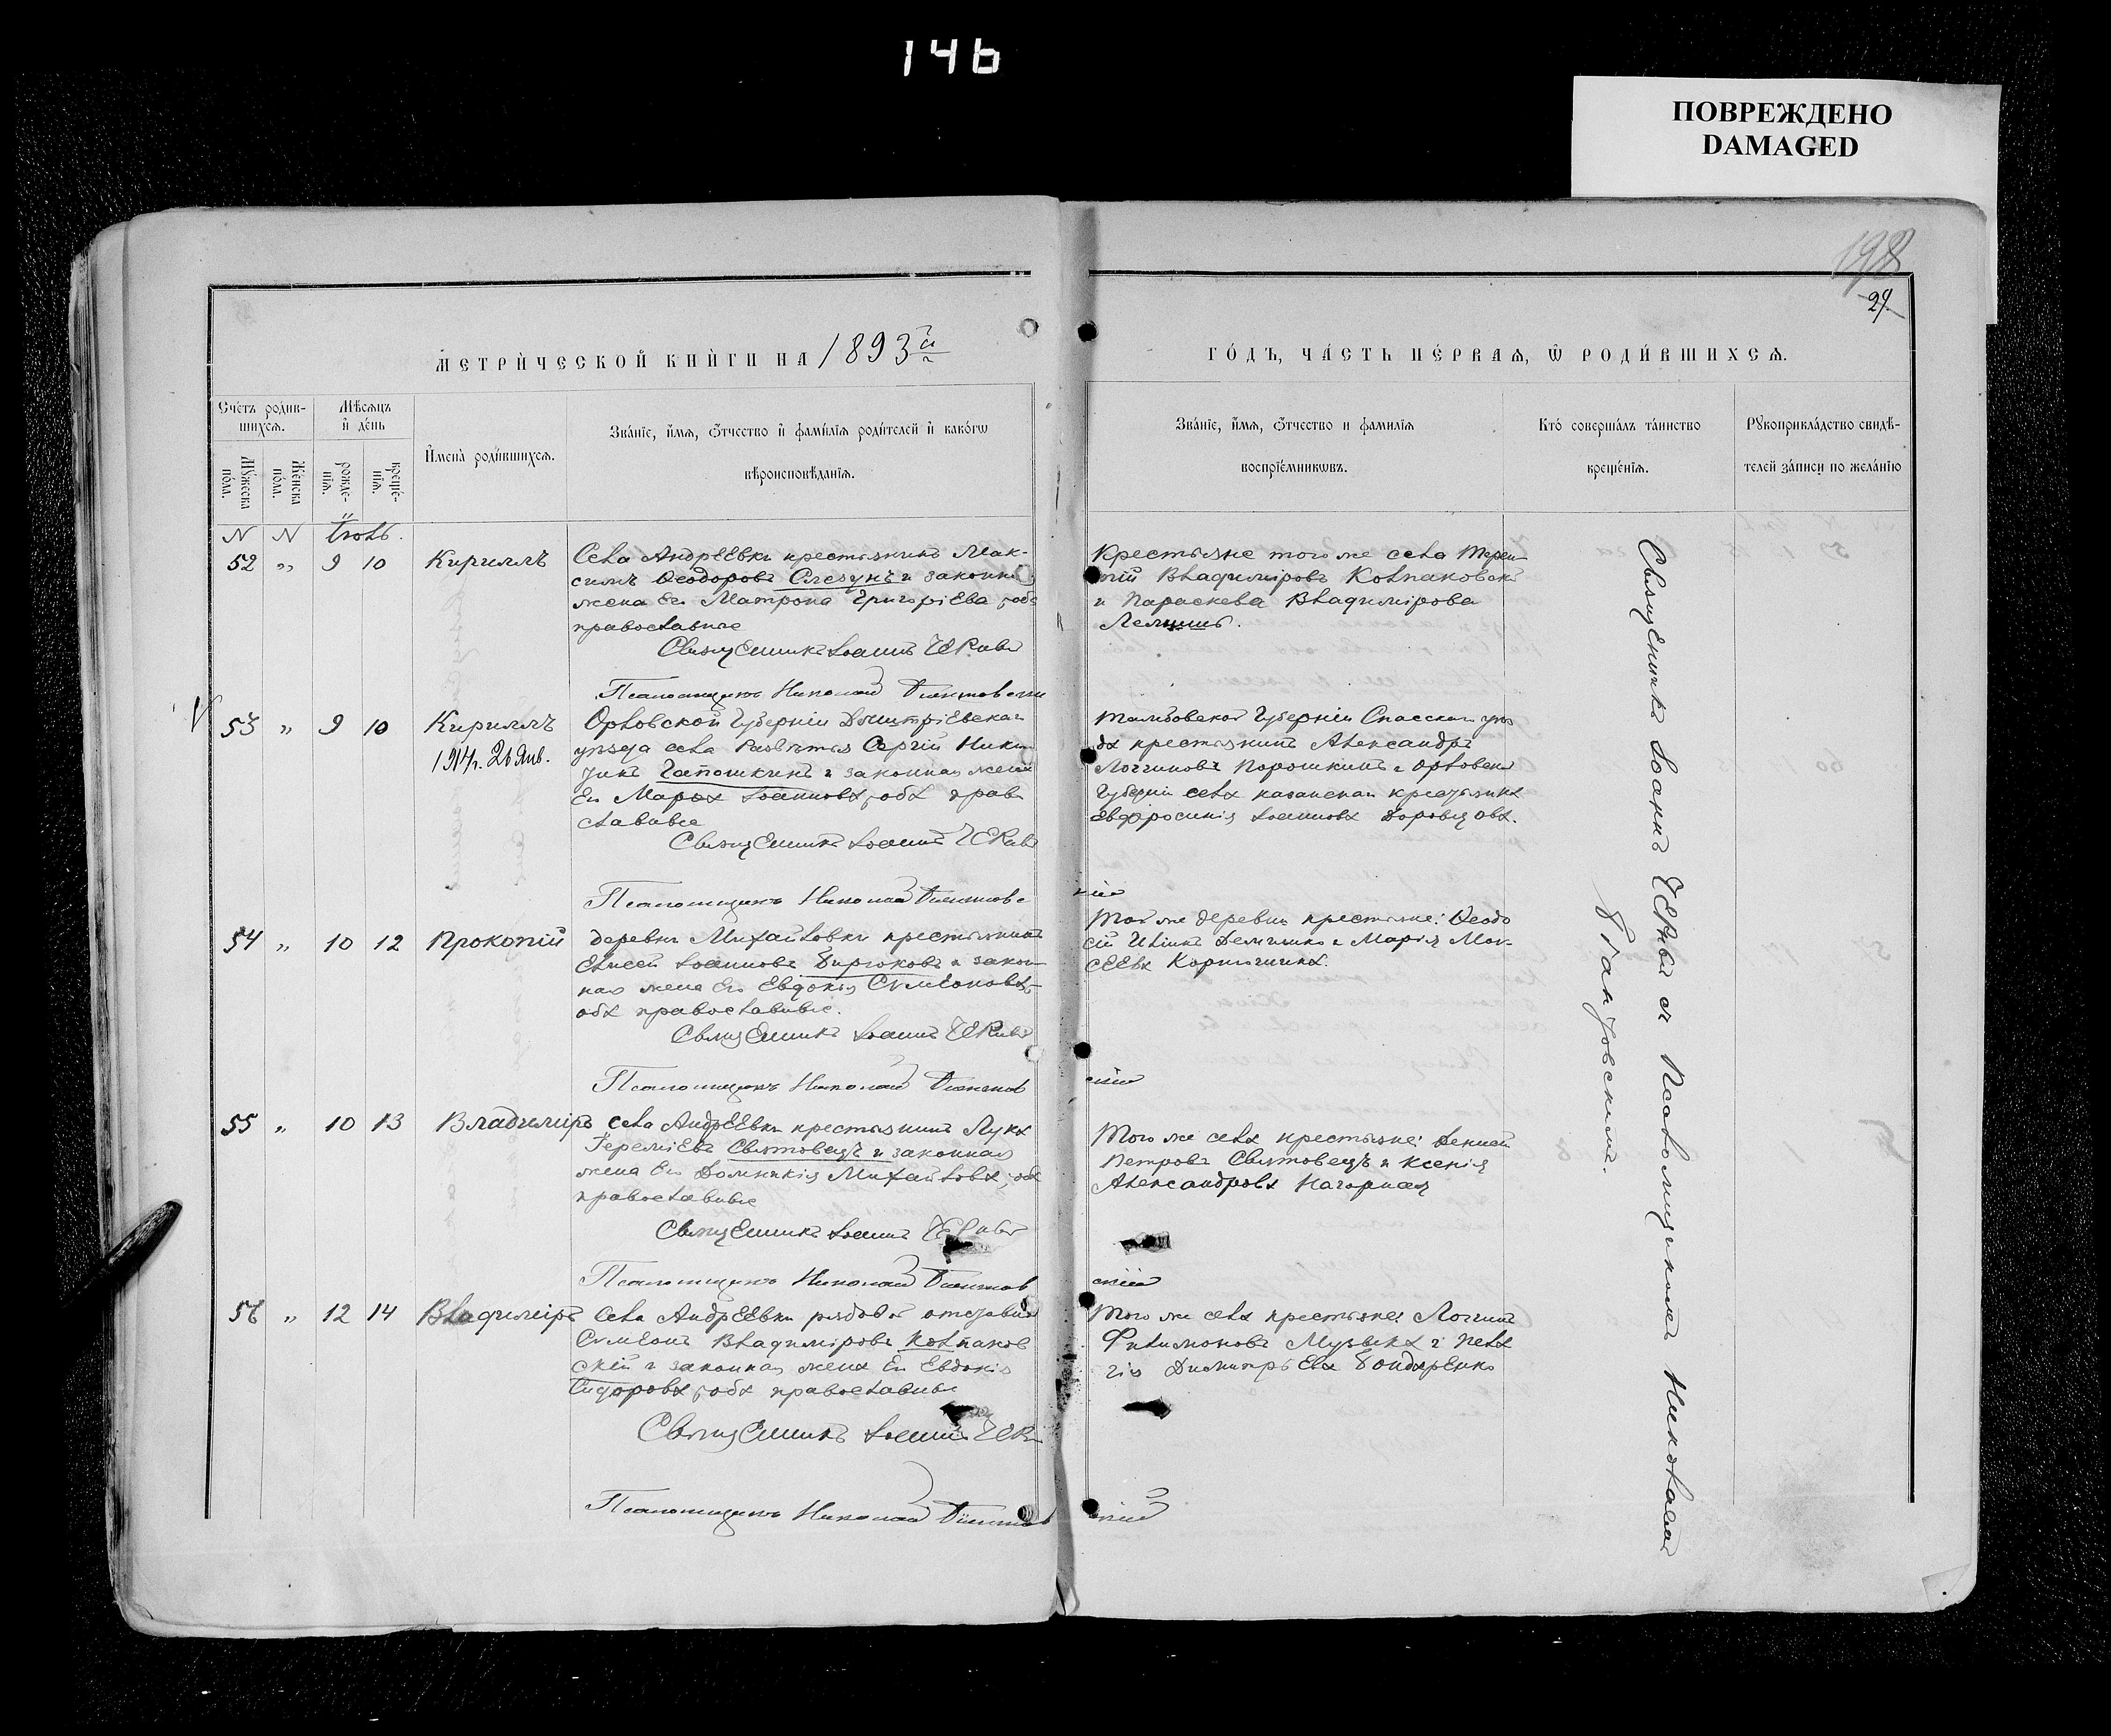 146
ПОВРЕЖДЕНО
DAMAGED
198
29
МЕТРИ́ЧЕСКОЙ КНИ́ГИ НА 1893й
ГО́ДЪ, ЧА́СТЬ ПЕ́РВАѦ, Ѿ РОДИ́ВШИХСѦ.
Сче́тъ роди́в-
шихсѧ.
Мѣ́сѧцъ
и҆ де́нь
Мꙋ́жеска по́ла.
Же́нска по́ла.
рожде́-
нїѧ.
креще́-
нїѧ.
И҆мена̀ роди́вшихсѧ.
Зва́нїе, и҆́мѧ, ѻ҆́тчество и҆ фами́лїѧ роди́телей и҆ како́гѡ
вѣроисповѣ́данїѧ.
Зва́нїе, и҆́мѧ, ѻ҆́тчество и фами́лїѧ
воспрїе́мникѡвъ.
Кто́ соверша́лъ та́инство
креще́нїѧ.
Рꙋкоприкла́дство свидѣ́-
телей за́писи по жела́нїю
N N Іюль.
52 „ 9 10 Кириллъ
Села Андреевки крестьянинъ Мак-
симъ Ѳеодоровъ Слезунъ и законная
жена его Матрона Григоріева, обa
православные
Священникъ Іоаннъ
Псаломщикъ Николай
Крестьяне того же села Терен-
тій Владиміровъ Колпаковскій
и Параскева Владимірова
53 „ 9 10 Кириллъ
1914г. 26 Янв.
Орловской Губерніи Дмитріевскаго
уѣзда села Сергій Ники-
и законная жена
его Іоаннова, оба право-
славные
Священникъ Іоаннъ
Псаломщикъ Николай
Тамбовской Губерніи Спасскаго уѣз-
да крестьянинъ Александръ
Логгиновъ Порошкинъ и Орловской
Губерніи села крестьянка
Евфросинія Іоаннова
54 „ 10 12 Прокопій
деревни Михайловки крестьянинъ
Елисей Іоанновъ Бирюковъ и закон-
ная жена его Евдокія Симеонова,
оба православные.
Священникъ Іоаннъ
Псаломщикъ Николай
Той же деревни крестьяне: Ѳеодо-
сій Ильинъ и Марія Мои-
сеева
55 „ 10 13 Владиміръ
села Андреевки крестьянинъ Лука
Іереміевъ Святовецъ и законная
жена его Домникія Михайлова, оба
православные
Священникъ Іоаннъ
Псаломщикъ Николай
Того же села крестьяне:
Петровъ Святовецъ и Ксенія
Александрова Нагорная
56 „ 12 14 Владиміръ
Села Андреевки рядовой отставной
Симеонъ Владиміровъ Колпаков-
скій и законная жена его Евдокія
Сидорова, оба православные
Священникъ Іоаннъ
Псаломщикъ Николай
Того же села крестьяне: Логгинъ
Филимоновъ Музыка и Пела-
гія Димитріева Бондаренко
Священникъ Іоаннъ съ Псаломщикомъ Николаемъ